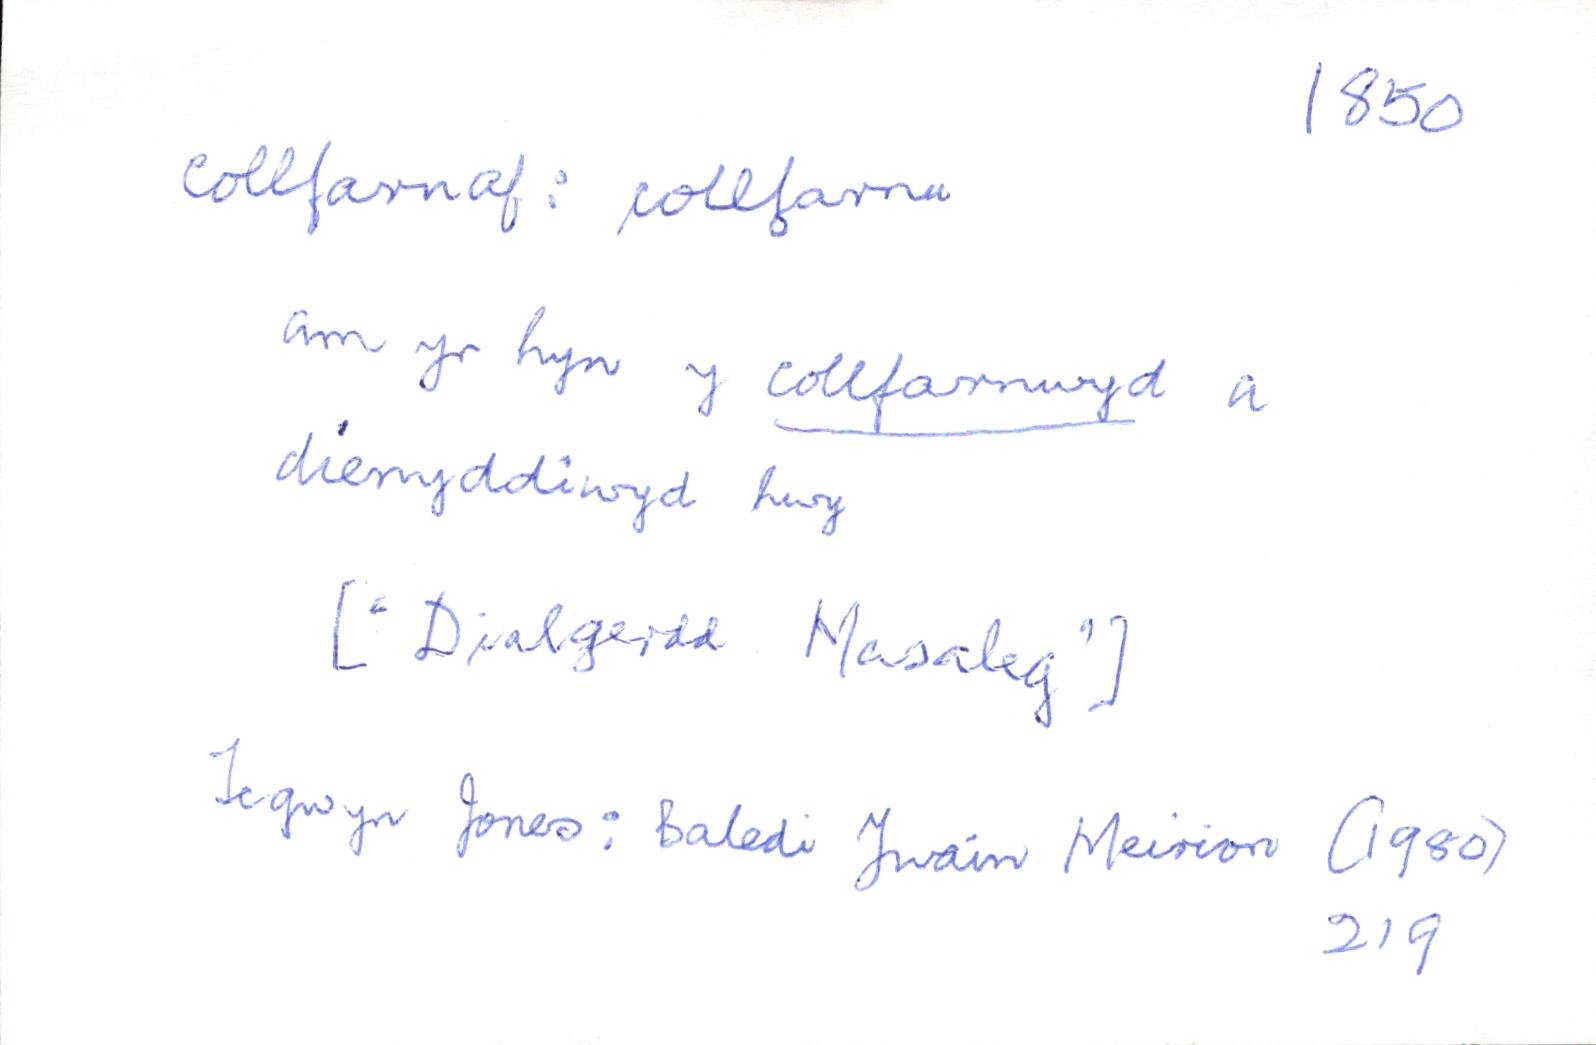 1850
collfarnaf: collfarnu
am yr hyn y collfarnwyd a
dienyddiwyd hwy
["Dialgerdd Masaleg"]
Tegwyn Jones: Baledi Ywain Meirion (1980)
219